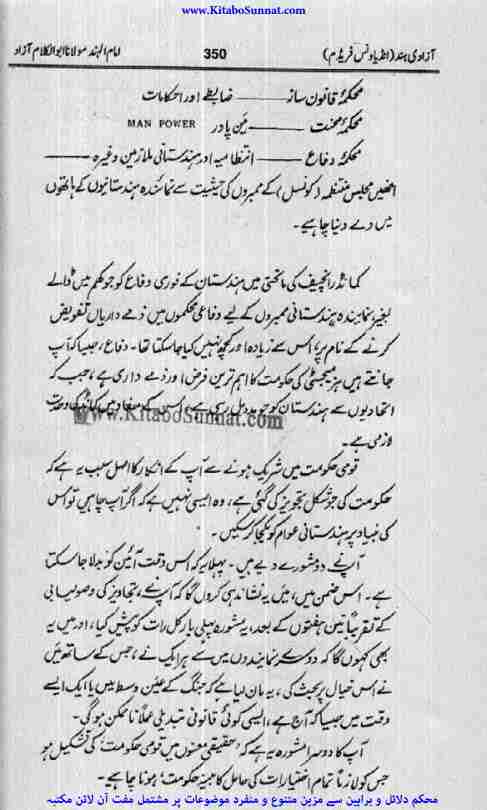 www.KitaboSunnat.com
آزادی ہند (انڈیا ونس فریڈم)
350
امام الہند مولانا ابوالکلام آزاد
محکمۂ قانون ساز ——— ضابطے اور احکامات
محکمۂ محنت ——— مَین پاور MAN POWER
محکمۂ دفاع ——— انتظامیہ اور ہندستانی ملازمین وغیرہ ———
انھیں مجلس منتظمہ (کونسل) کے ممبروں کی حیثیت سے نمائندہ ہندستانیوں کے ہاتھوں
میں دے دینا چاہیے۔
کمانڈر انچیف کی ماتحتی میں ہندستان کے فوری دفاع کو جوکھم میں ڈالے
بغیر، نمایندہ ہندستانی ممبروں کے لیے دفاعی محکموں میں ذمے داریاں تفویض
کرنے کے نام پر، اس سے زیادہ اور کچھ نہیں کیا جاسکتا تھا۔ دفاع، جیسا کہ آپ
جانتے ہیں ہز میجسٹی کی حکومت کا اہم ترین فرض اور ذمے داری ہے، جب کہ
اتحادیوں سے ہندستان کو جو مدد مل رہی ہے، اس کے مفاد میں کمانڈ کی وحدت
www.KitaboSunnat.com
لازمی ہے۔
قومی حکومت میں شریک ہونے سے آپ کے انکار کا اصل سبب یہ ہے کہ
حکومت کی جو شکل تجویز کی گئی ہے، وہ ایسی نہیں ہے کہ اگر آپ چاہیں تو اس
کی بنیاد پر ہندستانی عوام کو یکجا کرسکیں۔
آپ نے دو مشورے دیے ہیں۔ پہلا یہ کہ اس وقت آئین کو بدلا جاسکتا
ہے۔ اس ضمن میں، میں یہ نشاندہی کروں گا کہ آپ نے، تجاویز کی وصولیابی
کے تقریباً تین ہفتوں کے بعد، یہ مشورہ پہلی بار کل رات کو پیش کیا، اور میں یہ
بھی کہوں گا کہ دوسرے نمایندوں میں سے ہر ایک نے، جس کے ساتھ میں
نے اس خیال پر بحث کی، یہ مان لیا ہے کہ جنگ کے عین وسط میں یا ایک ایسے
وقت میں جیسا کہ آج ہے، ایسی کوئی قانونی تبدیلی عملاً ناممکن ہوگی۔
آپ کا دوسرا مشورہ یہ ہے کہ 'حقیقی معنوں میں قومی حکومت' کی تشکیل ہو
جس کو لازماً 'تمام اختیارات کی حامل کابینہ حکومت' ہونا چاہیے۔
محکم دلائل و براہین سے مزین متنوع و منفرد موضوعات پر مشتمل مفت آن لائن مکتبہ